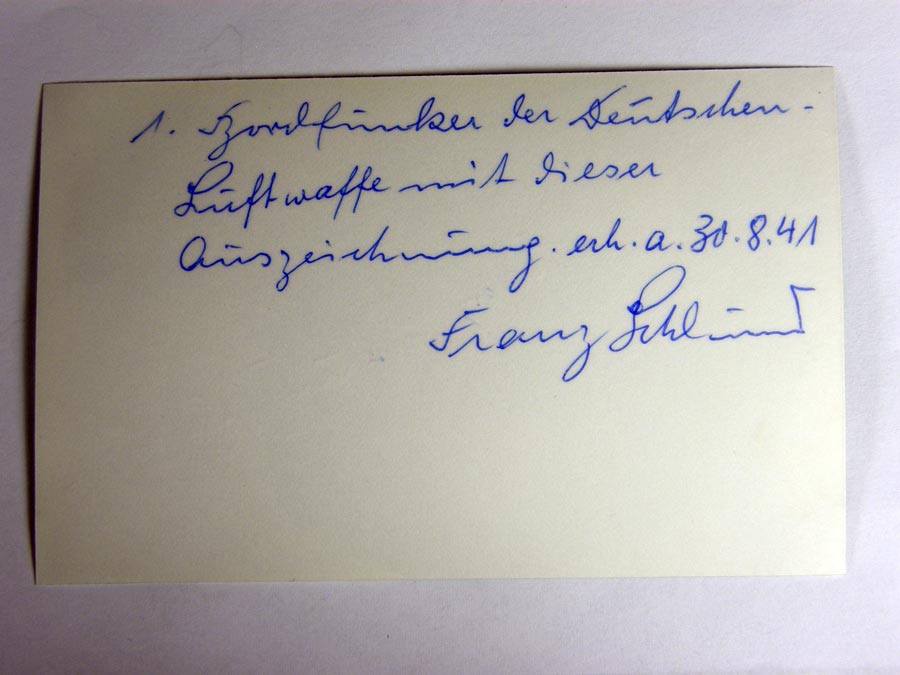 1. Bordfunker der Deutschen-
Luftwaffe mit dieser
Auszeichnung. erh. a. 30.8.41
Franz Schlund